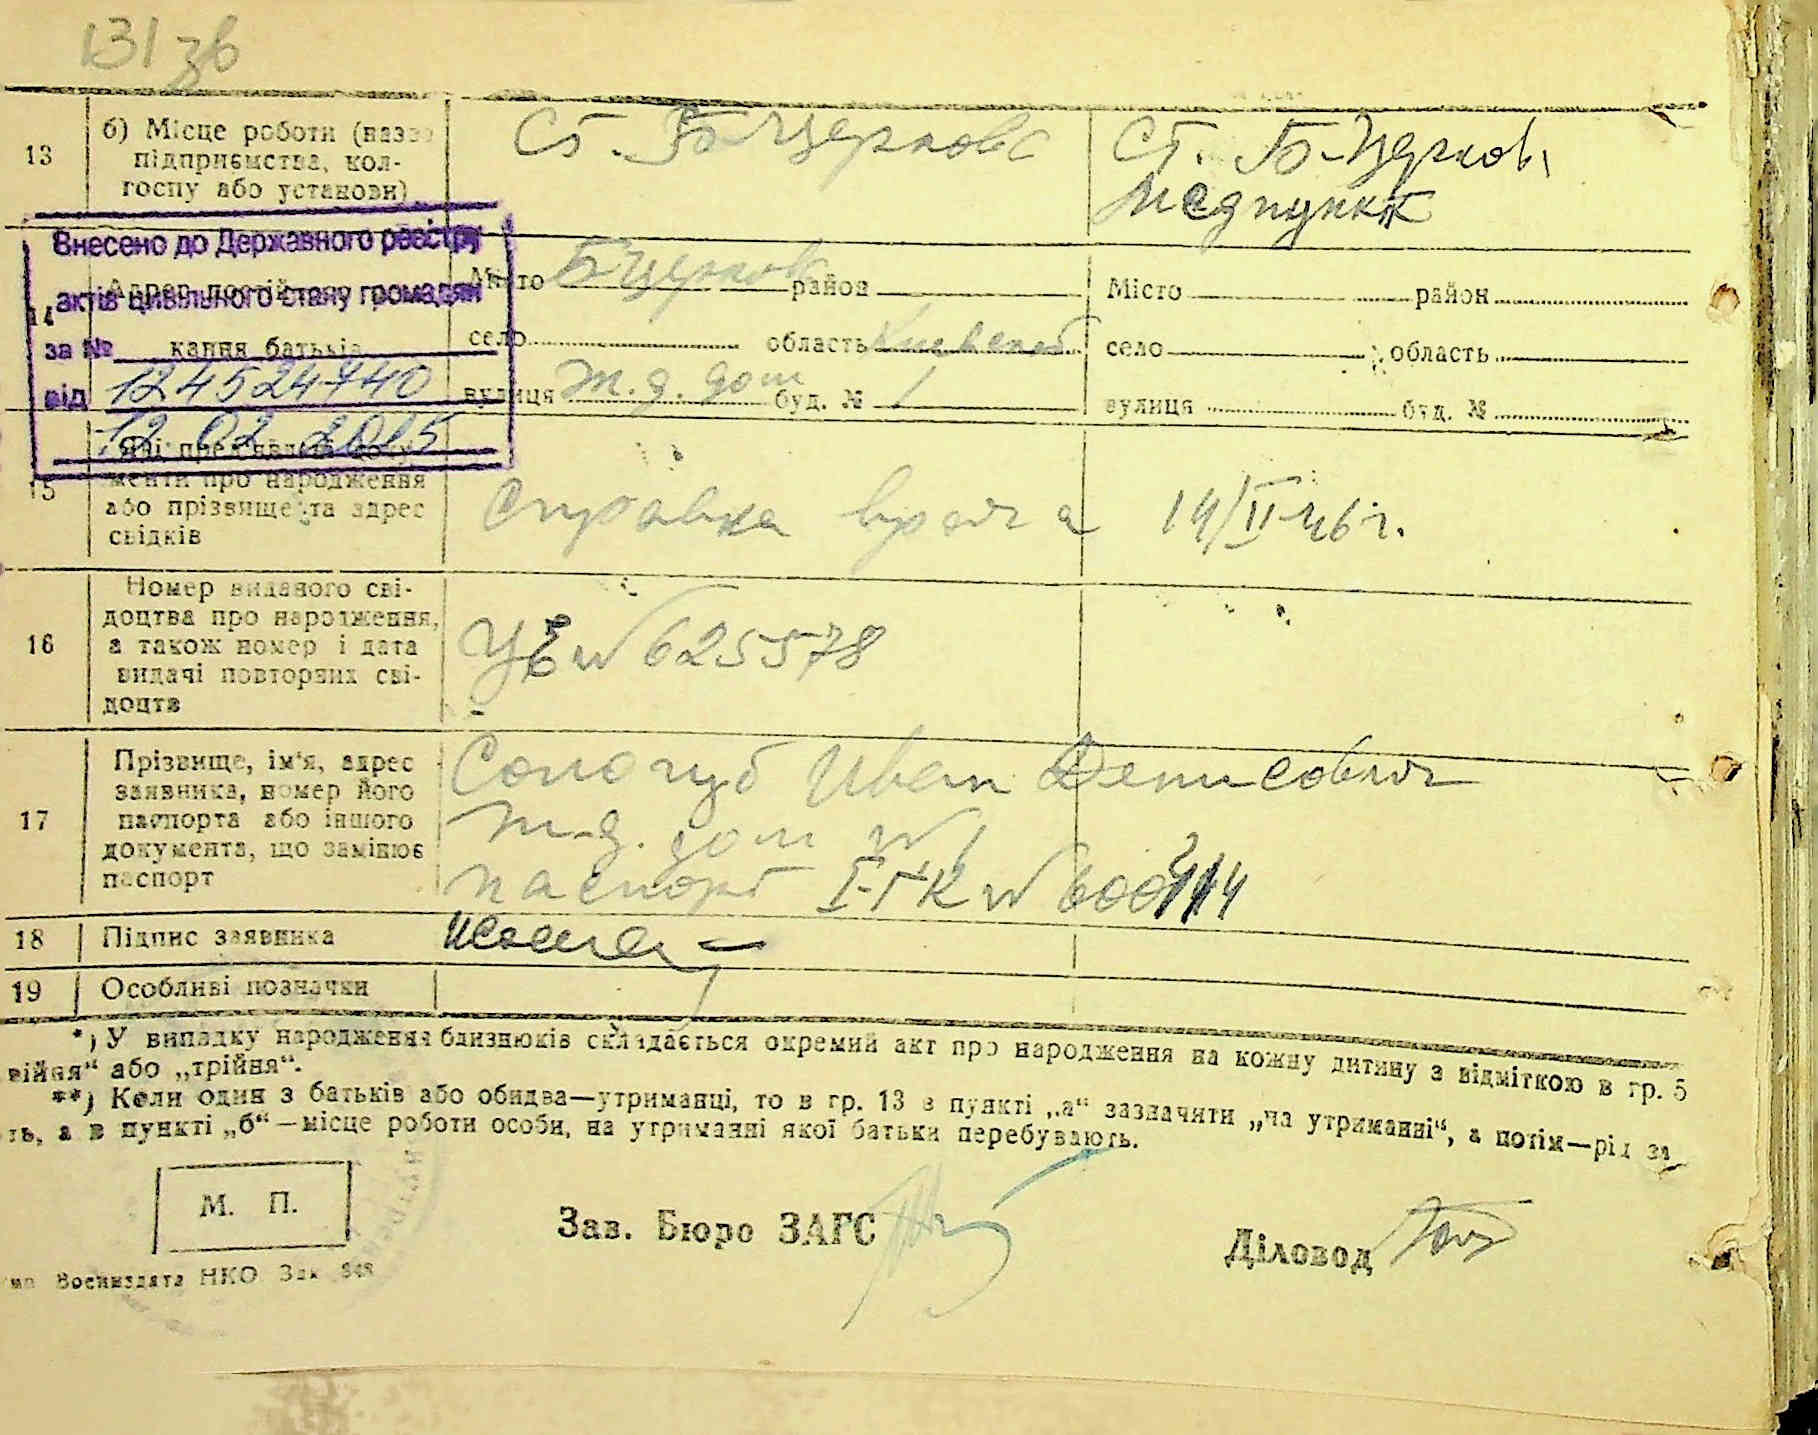 131 зв
13
б) Місце роботи (назва
підприємства, кол-
госпу або установи)
Ст. Б-Церковь
Ст. Б-Церковь
Медпункт
Внесено до Державного реєстру
актів цивільного стану громадян
за №
від 124524740
12 02 2015
14
кання батьків
Місто Б Церковь район
село область Киевская
вулиця ж.д. дом буд. № 1
Місто район
село область
вулиця буд. №
15
менти про народження
або прізвище та адрес
свідків
Справка врача 14/II-46 г.
16
Номер виданого сві-
доцтва про народження,
а також номер і дата
видачі повторних сві-
доцтв
№ 625578
17
Прізвище, ім'я, адрес
заявника, номер його
паспорта або іншого
документа, що замінює
паспорт
Сологуб Иван Денисович
ж-д. дом № 1
паспорт I-ГК №
18
Підпис заявника
19
Особливі позначки
*) У випадку народження близнюків складається окремий акт про народження на кожну дитину з відміткою в гр. 5
війня“ або „трійня“.
**) Коли один з батьків або обидва—утриманці, то в гр. 13 в пункті „а“ зазначити „на утриманні“, а потім—рід за
ть, а в пункті „б“—місце роботи особи, на утриманні якої батьки перебувають.
М. П.
Зав. Бюро ЗАГС
Діловод
Воениздата НКО Зак. 948